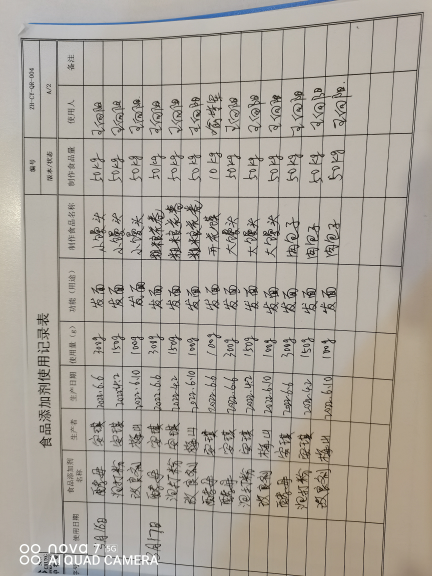 编号 ZH-CF-QR-004
版本/状态 A/2
食品添加剂使用记录表
使用日期 食品添加剂名称 生产者 生产日期 使用量(g) 功能(用途) 制作食品名称 制作食品量 使用人 备注
月16日 酵母 安琪 2022.6.6 300g 发面 小馒头 50kg 王向阳
泡打粉 安琪 2022.4.2 150g 发面 小馒头 50kg 王向阳
改良剂 梅山 2022.6.10 100g 发面 小馒头 50kg 王向阳
月17日 酵母 安琪 2022.6.6 300g 发面 50kg 王向阳
泡打粉 安琪 2022.4.2 150g 发面 50kg 王向阳
改良剂 梅山 2022.6.10 100g 发面 50kg 王向阳
酵母 安琪 2022.6.6 100g 发面 开花馍 10kg
酵母 安琪 2022.6.6 300g 发面 大馒头 50kg 王向阳
泡打粉 安琪 2022.4.2 150g 发面 大馒头 50kg 王向阳
改良剂 梅山 2022.6.10 100g 发面 大馒头 50kg 王向阳
酵母 安琪 2022.6.6 300g 发面 肉包子 50kg 王向阳
泡打粉 安琪 2022.4.2 150g 发面 肉包子 50kg 王向阳
改良剂 梅山 2022.6.10 100g 发面 肉包子 50kg 王向阳
nova 7 5G
AI QUAD CAMERA